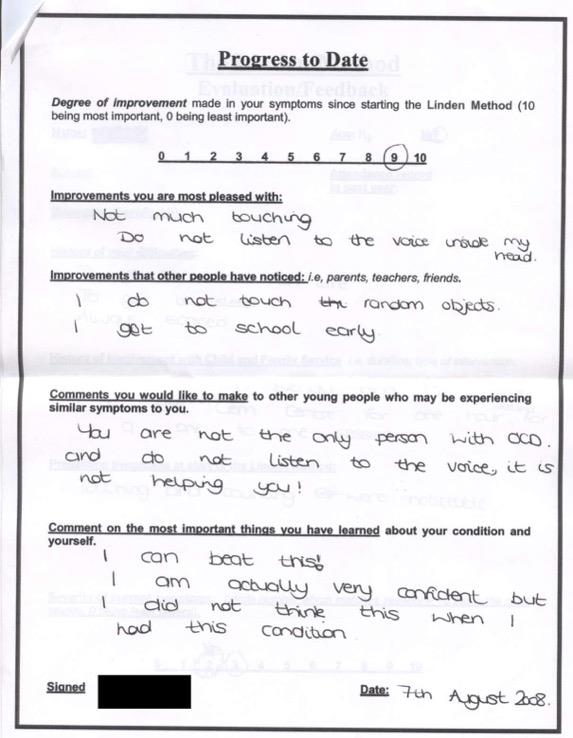 Progress to Date
Degree of improvement made in your symptoms since starting the Linden Method (10
being most important, 0 being least important).
0 1 2 3 4 5 6 7 8 9 10
Improvements you are most pleased with:
Not much touching
Do not listen to the voice inside my
head.
Improvements that other people have noticed: i.e, parents, teachers, friends.
I do not touch the random objects.
I get to school early.
Comments you would like to make to other young people who may be experiencing
similar symptoms to you.
You are not the only person with OCD.
and do not listen to the voice, it is
not helping you!
Comment on the most important things you have learned about your condition and
yourself.
I can beat this!
I am actually very confident but
I did not think this when I
had this condition
Signed Date: 7th August 2008.